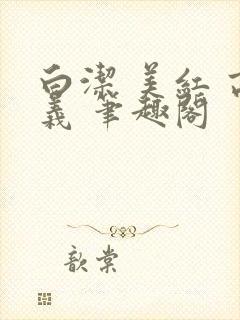 白潔 美紅 高
義 筆趣閣
歆棠